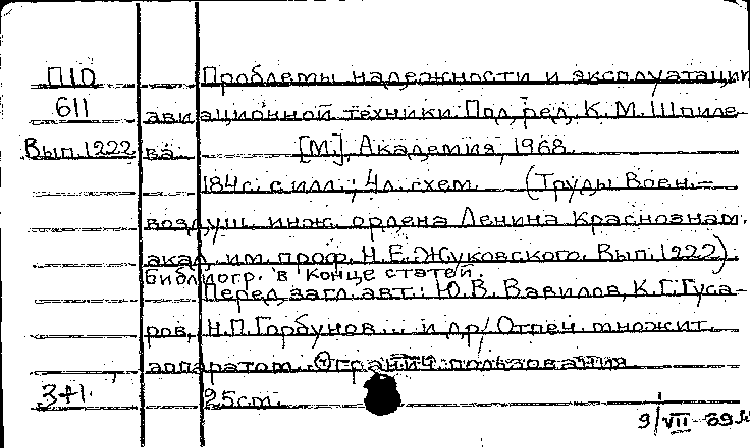 П10 Проблемы надежности и эксплуатации
611 авиационной техники. Под ред. К. М. Шпиле-
Вып. 1222 ва. [М.], Академия, 1968.
184 с. с илл.; 4 л. схем. (Труды Воен.-
воздуш. инж. ордена Ленина Краснознам.
акад. им. проф. Н. Е. Жуковского. Вып. 1222).
Библиогр. в конце статей.
Перед загл. авт.: Ю. В. Вавилов, К. Г. Гуса-
ров, Н. П. Горбунов... и др. Отпеч. множит.
аппаратом. Огранич. пользования
3+1. 25 см.
9/VII